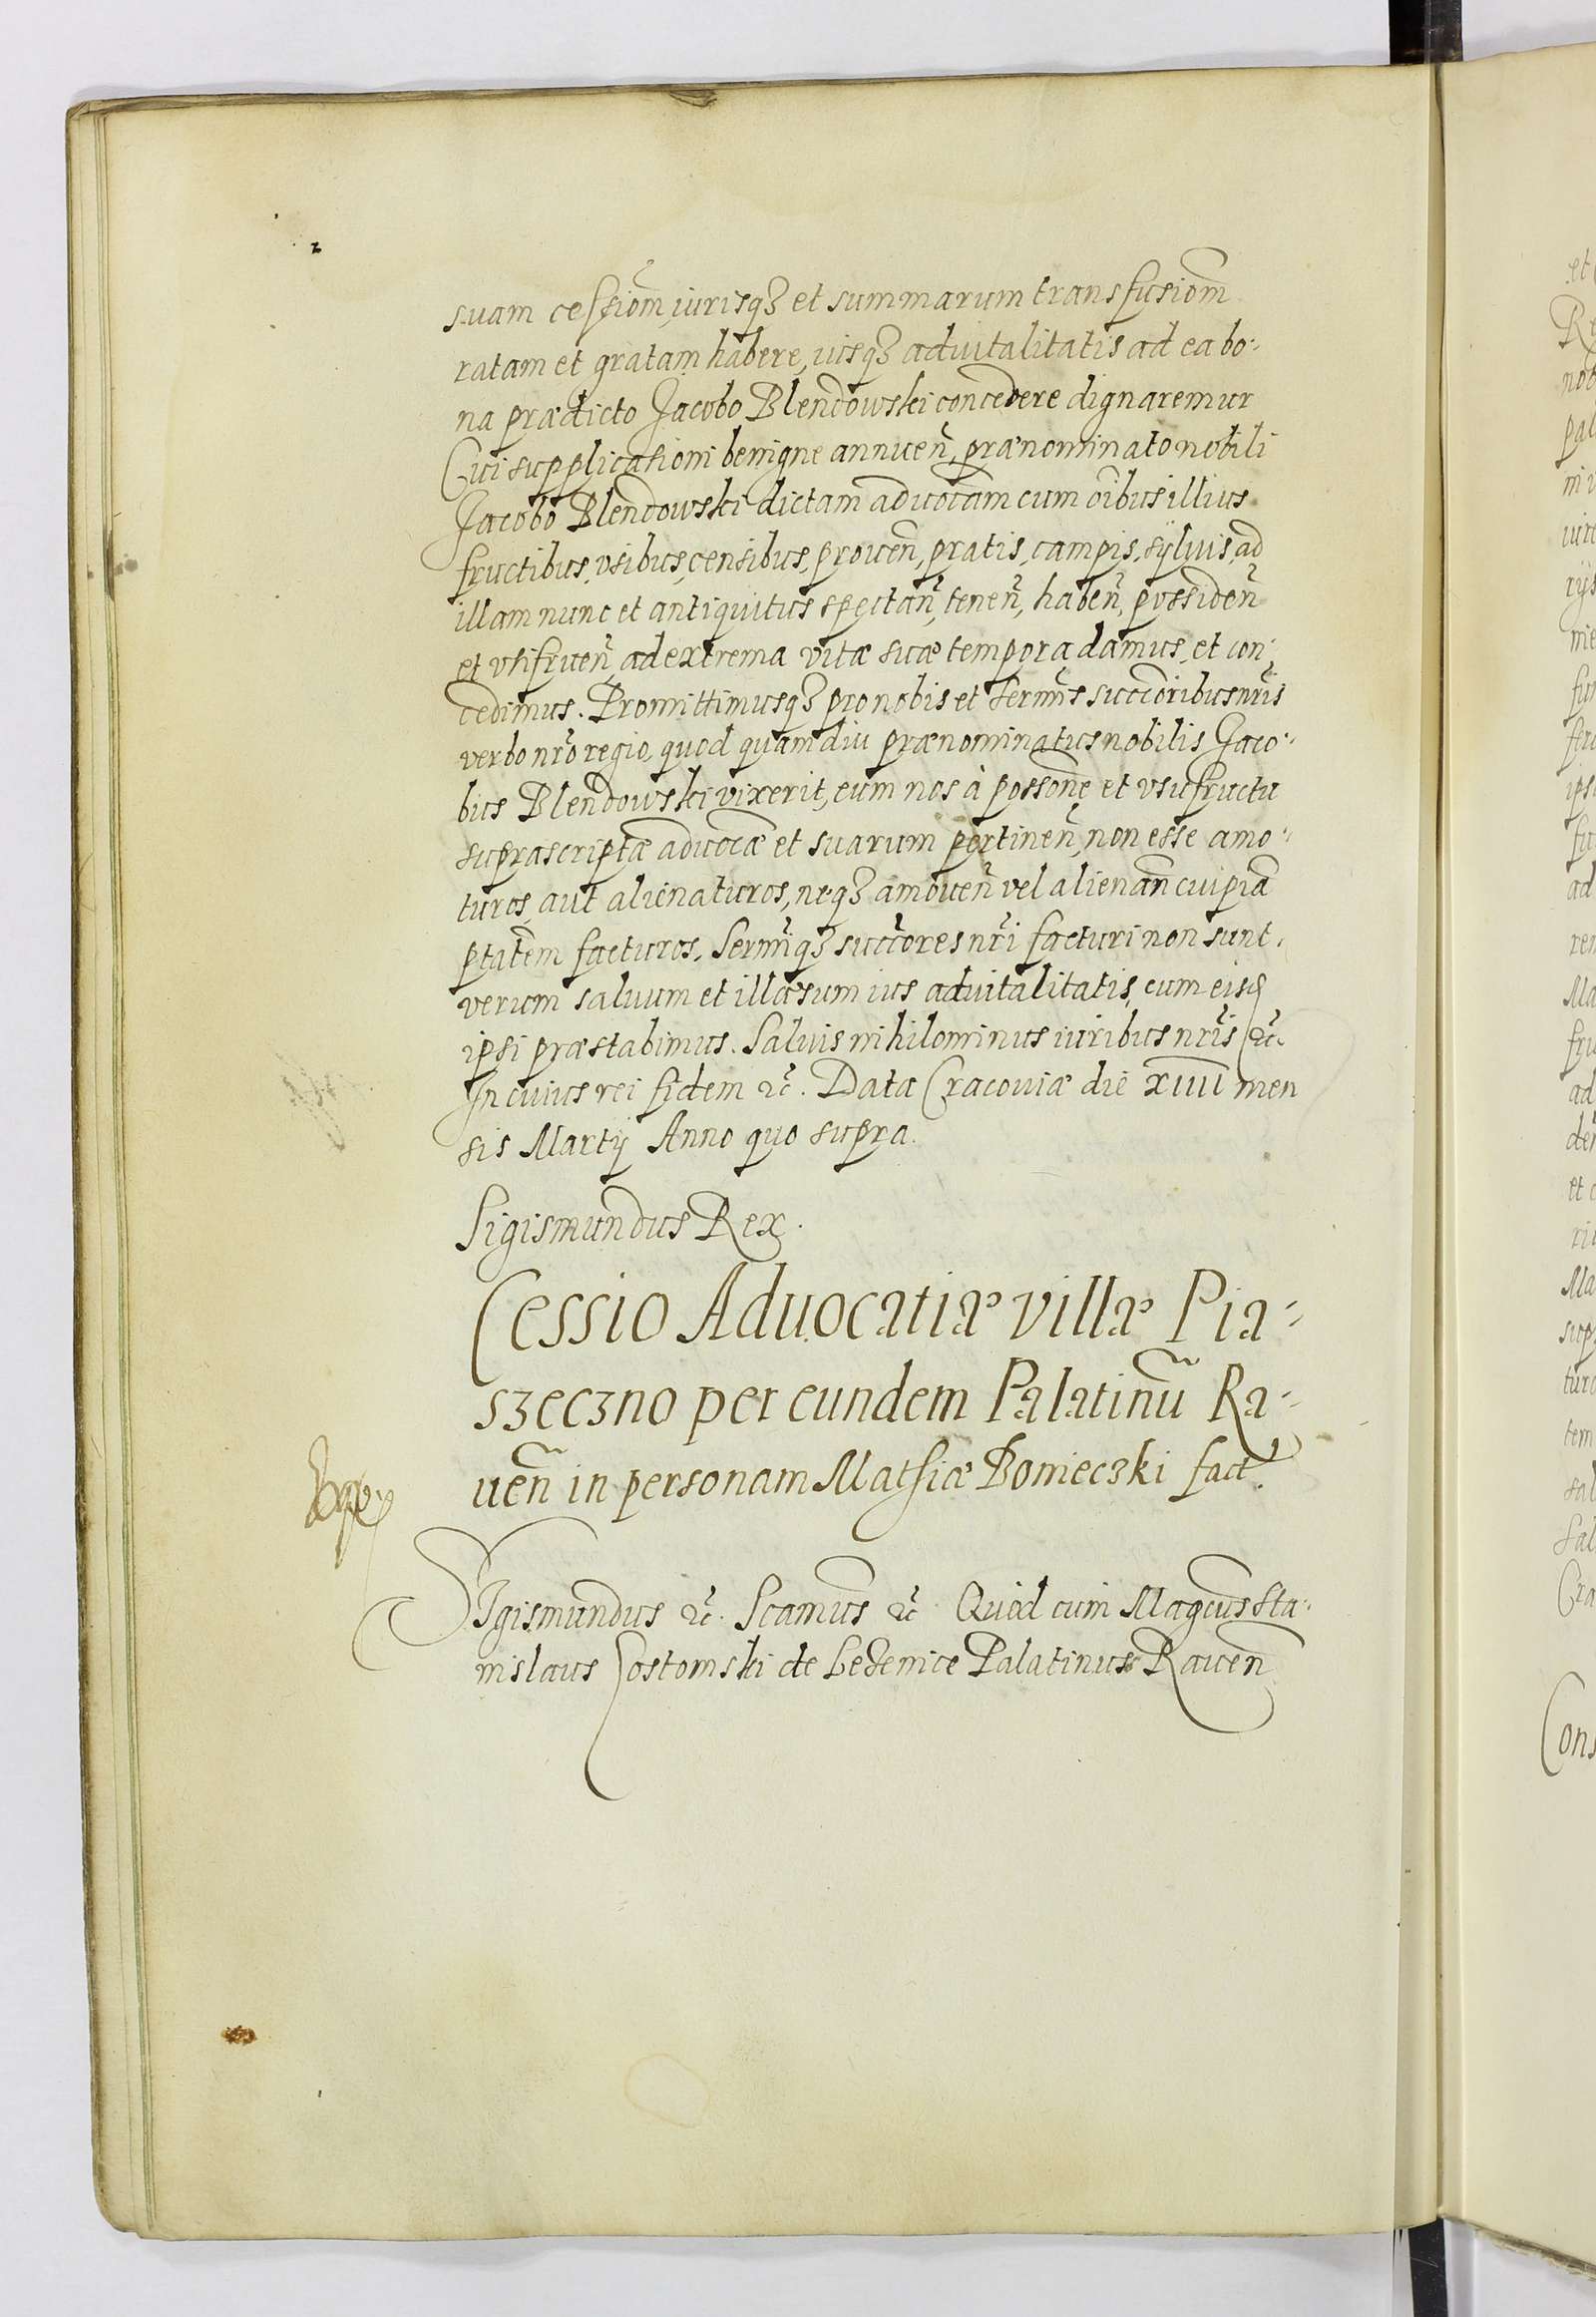 suam cessiom̃, iurisqꝫ et summarum transfusiom̃
ratam et gratam habere, iusqꝫ aduitalitatis ad ea bo-
na prædicto Jacobo Blendowski concedere dignaremur
Cui supplicationi benigne annuen̄, prænominato nobili
Jacobo Blendowski dictam aduocãm cum oĩbus illius
fructibus, vsibus, censibus, prouen̄, pratis, campis, syluis, ad
illam nunc et antiquitus spectan̄, tenen̄, haben̄, possiden̄
et vsifruen̄, ad extrema vitæ suæ tempora damus, et con-
cedimus. Promittimusqꝫ pro nobis et serm̃s succõribus nr̃is
verbo nr̃o regio, quod quam diu prænominatus nobilis Jaco-
bus Blendowski vixerit, eum nos à possoñe et vsufructu
suprascriptæ aduocãæ et suarum pertinen̄, non esse amo-
turos, aut alienaturos, neqꝫ amouen̄ vel alienan̄ cuipiã
ptatẽm facturos, Serm̃iqꝫ succõres nr̃i facturi non sunt,
verum saluum et illæsum ius aduitalitatis, cum eisd̃
ipsi præstabimus. Saluis nihilominus iuribus nr̃is ꝛc̃.
In cuius rei fidem ꝛc̃. Data Cracouiæ die XIIII men
sis Martij Anno quo supra.
Sigismundus Rex.
Cessio Aduocatiæ villæ Pia-
szeczno per eundem Palatinũ Ra-
uen̄ in personam Mathiæ Bonieczki fact.
Sigismundus ꝛc̃. Scamus̃ ꝛc̃. Quod cum Magcus̃ Sta-
nislaus Gostomski de Lezenice Palatinus Rauen̄